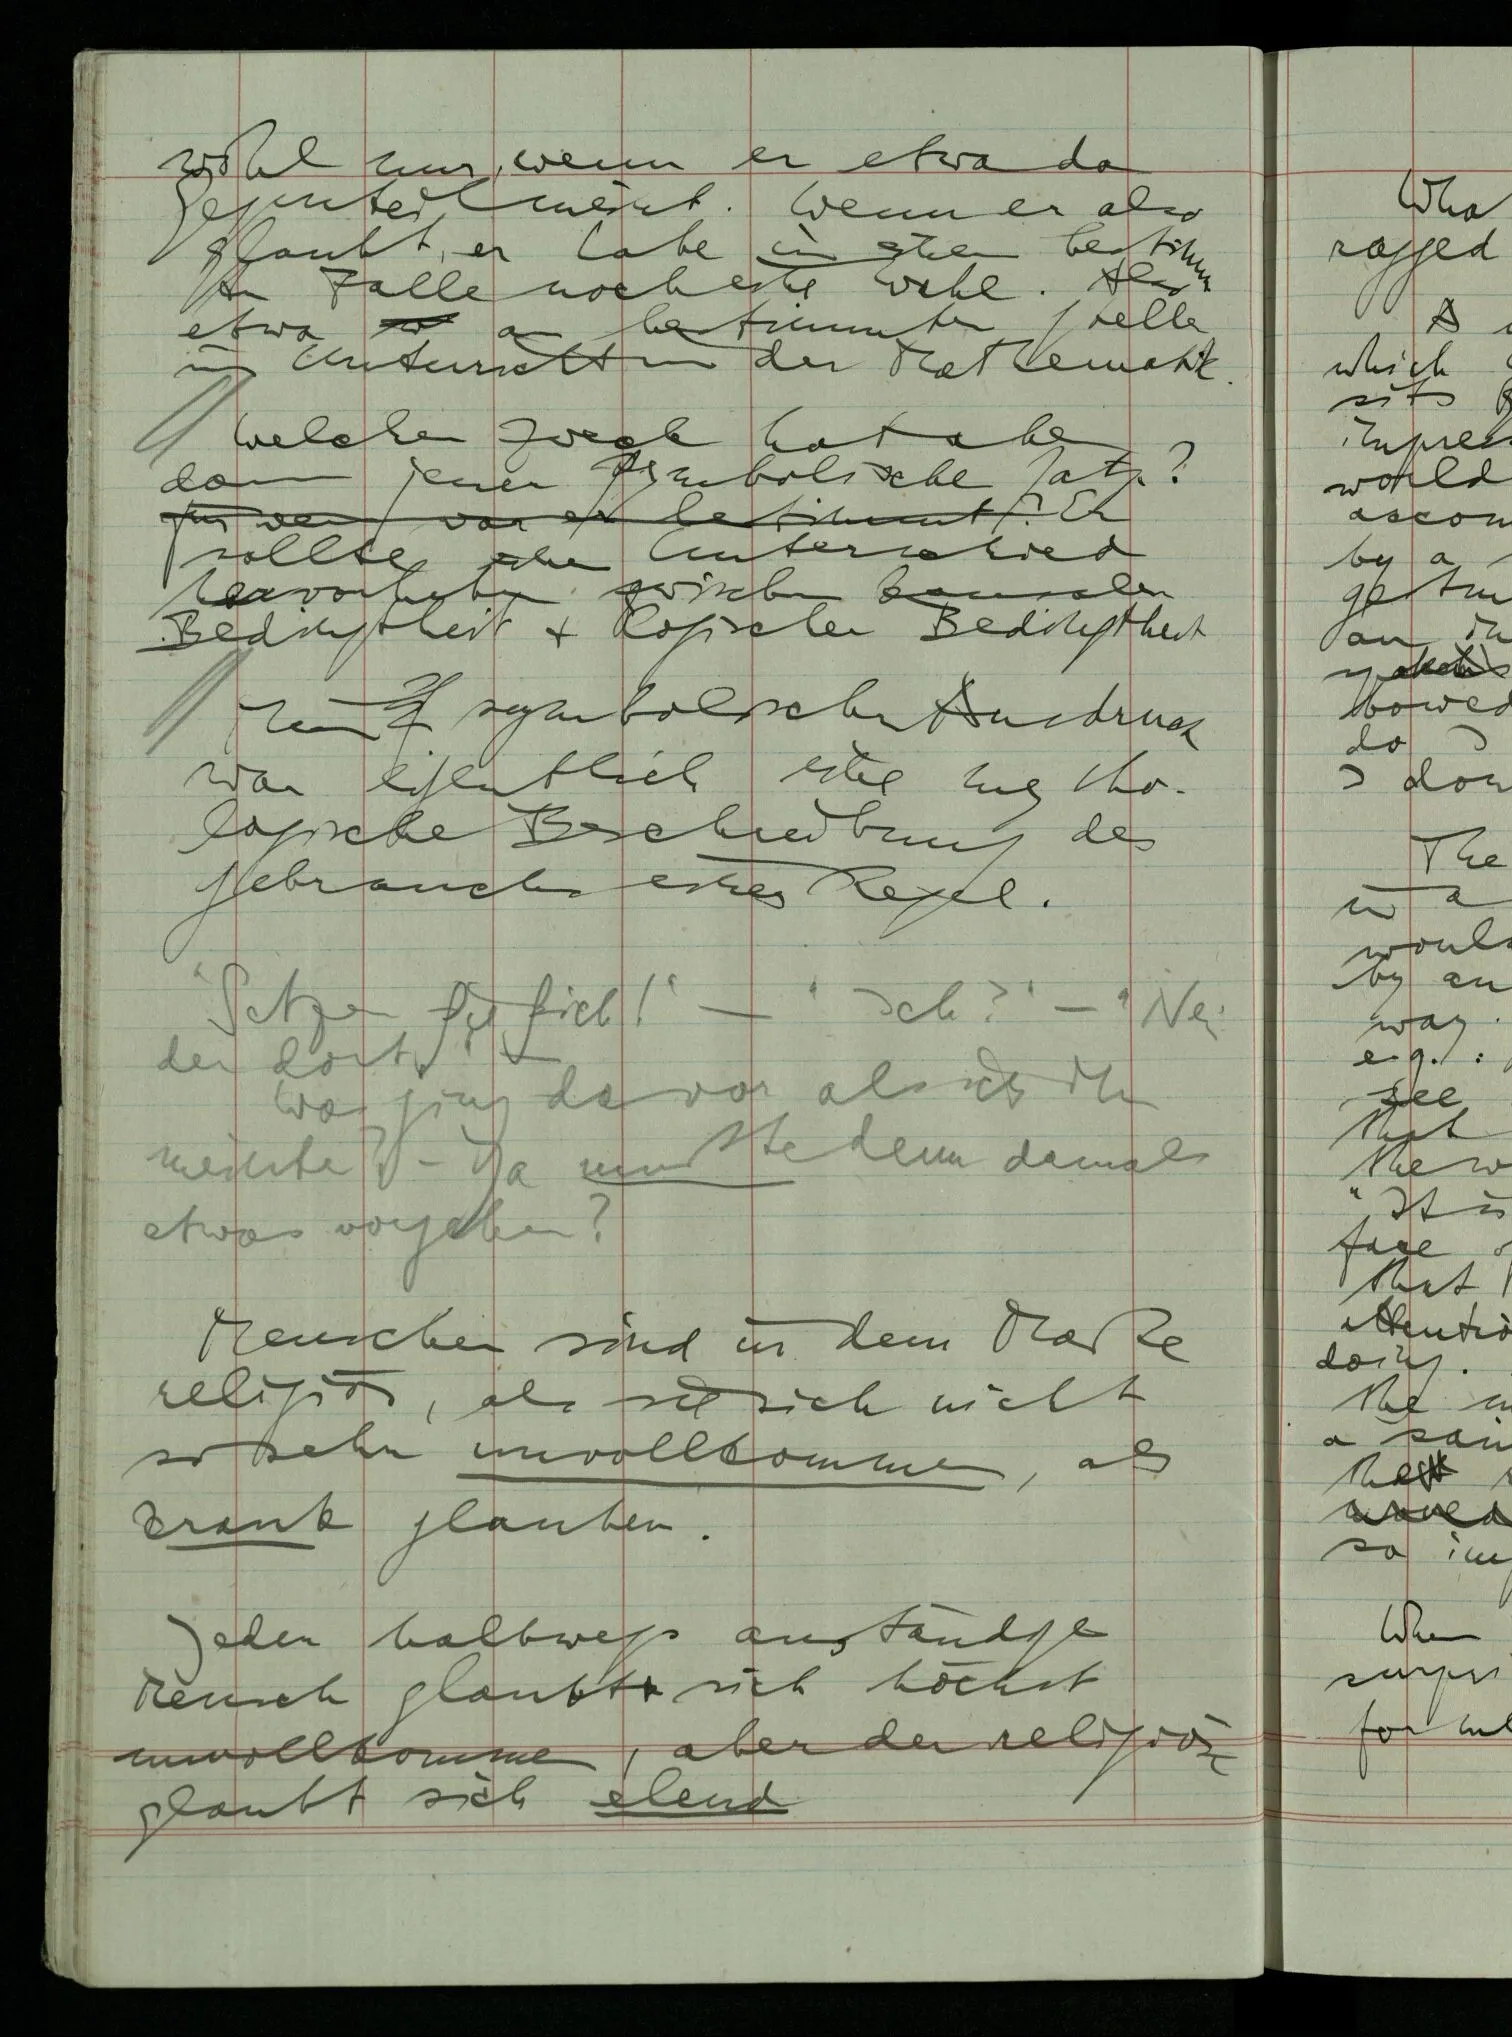 wohl nur, wenn er etwa das
Gegenteil meint. Wenn er also
glaubt, er habe in einem bestimm
ten Falle noch eine Wahl. Also
etwa an bestimmter Stelle
im Unterricht in der Mathematik.
Welchen Zweck hat aber
dann jener symbolische Satz?
Für wen war er bestimmt? Er
sollte einen Unterschied
hervorheben zwischen kausaler
Bedingtheit & logischer Bedingtheit
Mein symbolischer Ausdruck
war eigentlich eine mytho-
logische Beschreibung des
Gebrauchs einer Regel.
"Setzen Sie sich!" — "Ich?" — "Nein
der dort!" —
Was ging da vor als ich ihn
meinte? – Ja musste denn damals
etwas vorgehen?
Menschen sind in dem Maße
religiös, als sie sich nicht
so sehr unvollkommen, als
krank glauben.
Jeder halbwegs anständige
Mensch glaubt sich höchst
unvollkommen, aber der religiöse
glaubt sich elend
Wha
ragged
A
which
sits
impress
world
accom
by a
gestu
an in
bowed
do
down
The
in a
would
by an
way.
e.g.:
see
that
the w
"It is
face o
that
attentio
doing.
the
a sam
the
so im
When
surpri
for